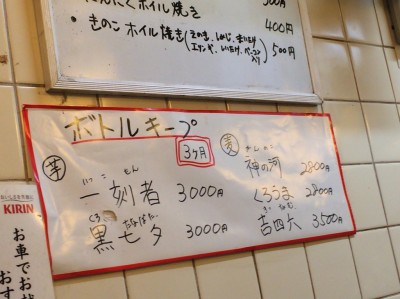 にんにくホイル焼き 300円
400円
・きのこホイル焼き(えのき、しめじ、まいたけ
エリンギ、しいたけ、ベーコン入り) 500円
ボトルキープ
3ヶ月
芋
いっこもん
一刻者 3000円
くろ たなばた
黒七夕 3000円
麦
かんのこ
神の河 2800円
くろうま 2800円
きっちょむ
吉四六 3500円
KIRIN
お車でお越
おす